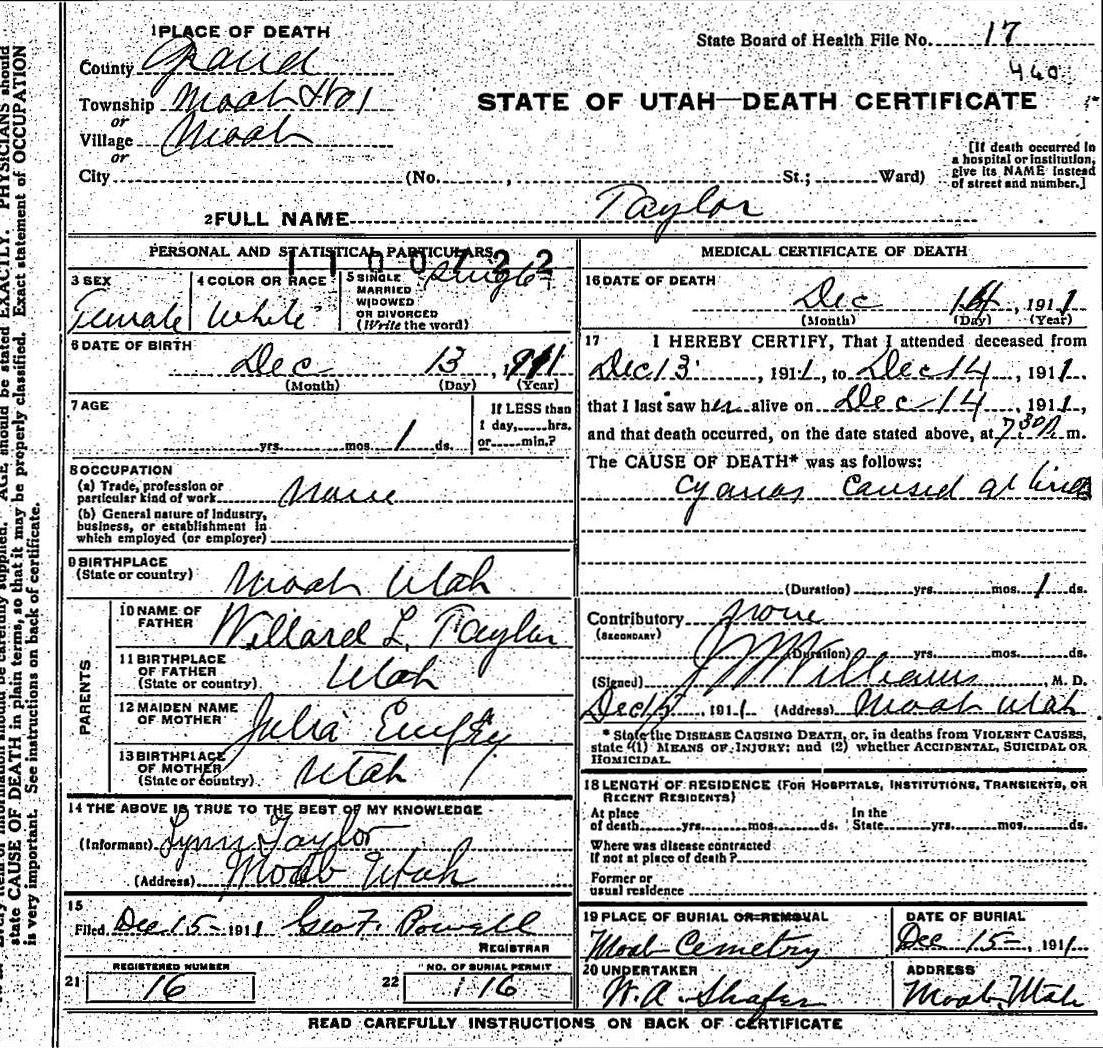 1 PLACE OF DEATH
State Board of Health File No. 17
County Grand
460
Township Moab
or
STATE OF UTAH—DEATH CERTIFICATE
Village Moab
or
City (No. , St.; Ward)
[If death occurred in a hospital or institution, give its NAME instead of street and number.]
2 FULL NAME Taylor
PERSONAL AND STATISTICAL PARTICULARS
3 SEX
Female
4 COLOR OR RACE
White
5 SINGLE
MARRIED
WIDOWED
OR DIVORCED
(Write the word)
Single
6 DATE OF BIRTH
Dec 13, 1911
(Month) (Day) (Year)
7 AGE
yrs. mos. 1 ds.
If LESS than
1 day, hrs.
or min.?
8 OCCUPATION
(a) Trade, profession or
particular kind of work None
(b) General nature of industry,
business, or establishment in
which employed (or employer)
9 BIRTHPLACE
(State or country) Moab Utah
PARENTS
10 NAME OF
FATHER Willard L. Taylor
11 BIRTHPLACE
OF FATHER
(State or country) Utah
12 MAIDEN NAME
OF MOTHER Julia
13 BIRTHPLACE
OF MOTHER
(State or country) Utah
14 THE ABOVE IS TRUE TO THE BEST OF MY KNOWLEDGE
(Informant) Lynn Taylor
(Address) Moab Utah
15
Filed Dec 15 - 1911 Geo F. Powell
REGISTRAR
REGISTERED NUMBER
21 16
NO. OF BURIAL PERMIT
22 116
MEDICAL CERTIFICATE OF DEATH
16 DATE OF DEATH
Dec 14, 1911
(Month) (Day) (Year)
17 I HEREBY CERTIFY, That I attended deceased from
Dec 13, 1911, to Dec 14, 1911
that I last saw her alive on Dec 14, 1911,
and that death occurred, on the date stated above, at 7:30 P. m.
The CAUSE OF DEATH* was as follows:
caused at birth
(Duration) yrs. mos. 1 ds.
Contributory None
(SECONDARY)
(Duration) yrs. mos. ds.
(Signed) J W Williams, M. D.
Dec, 1911 (Address) Moab Utah
* State the DISEASE CAUSING DEATH, or, in deaths from VIOLENT CAUSES,
state (1) MEANS OF INJURY; and (2) whether ACCIDENTAL, SUICIDAL OR
HOMICIDAL.
18 LENGTH OF RESIDENCE (FOR HOSPITALS, INSTITUTIONS, TRANSIENTS, OR
RECENT RESIDENTS)
At place
of death yrs. mos. ds.
In the
State yrs. mos. ds.
Where was disease contracted
If not at place of death?
Former or
usual residence
19 PLACE OF BURIAL OR REMOVAL
Moab Cemetry
DATE OF BURIAL
Dec 15 -, 1911
20 UNDERTAKER
W. A. Shafer
ADDRESS
Moab, Utah
READ CAREFULLY INSTRUCTIONS ON BACK OF CERTIFICATE
should be stated EXACTLY. PHYSICIANS should
state CAUSE OF DEATH in plain terms, so that it may be properly classified. Exact statement of OCCUPATION
is very important. See instructions on back of certificate.